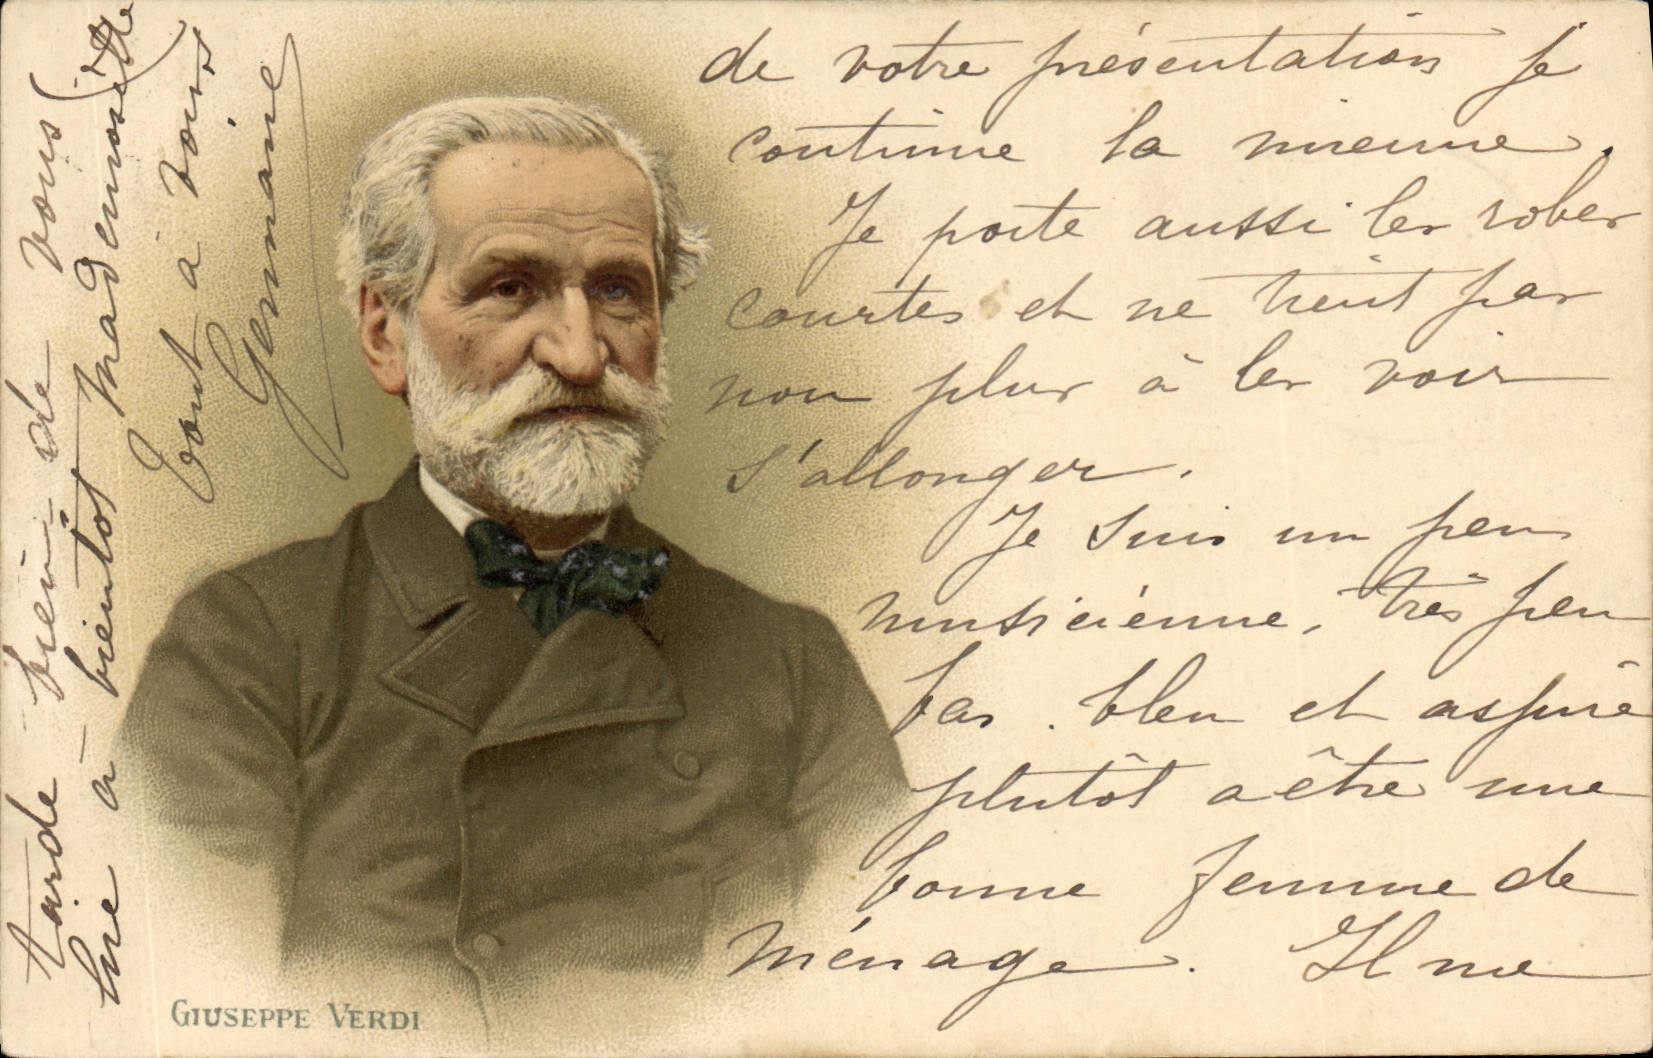 de votre présentation je
continue la mienne.
Je porte aussi les robes
courtes et ne tient pas
non plus à les voir
s'allonger.
Je suis un peu
musicienne, très peu
bas. bleu et aspire
plutôt a être une
bonne femme de
ménage. Il me
tarde bien de vous
lire à bientôt Mademoiselle
Tout à vous
Germaine
GIUSEPPE VERDI